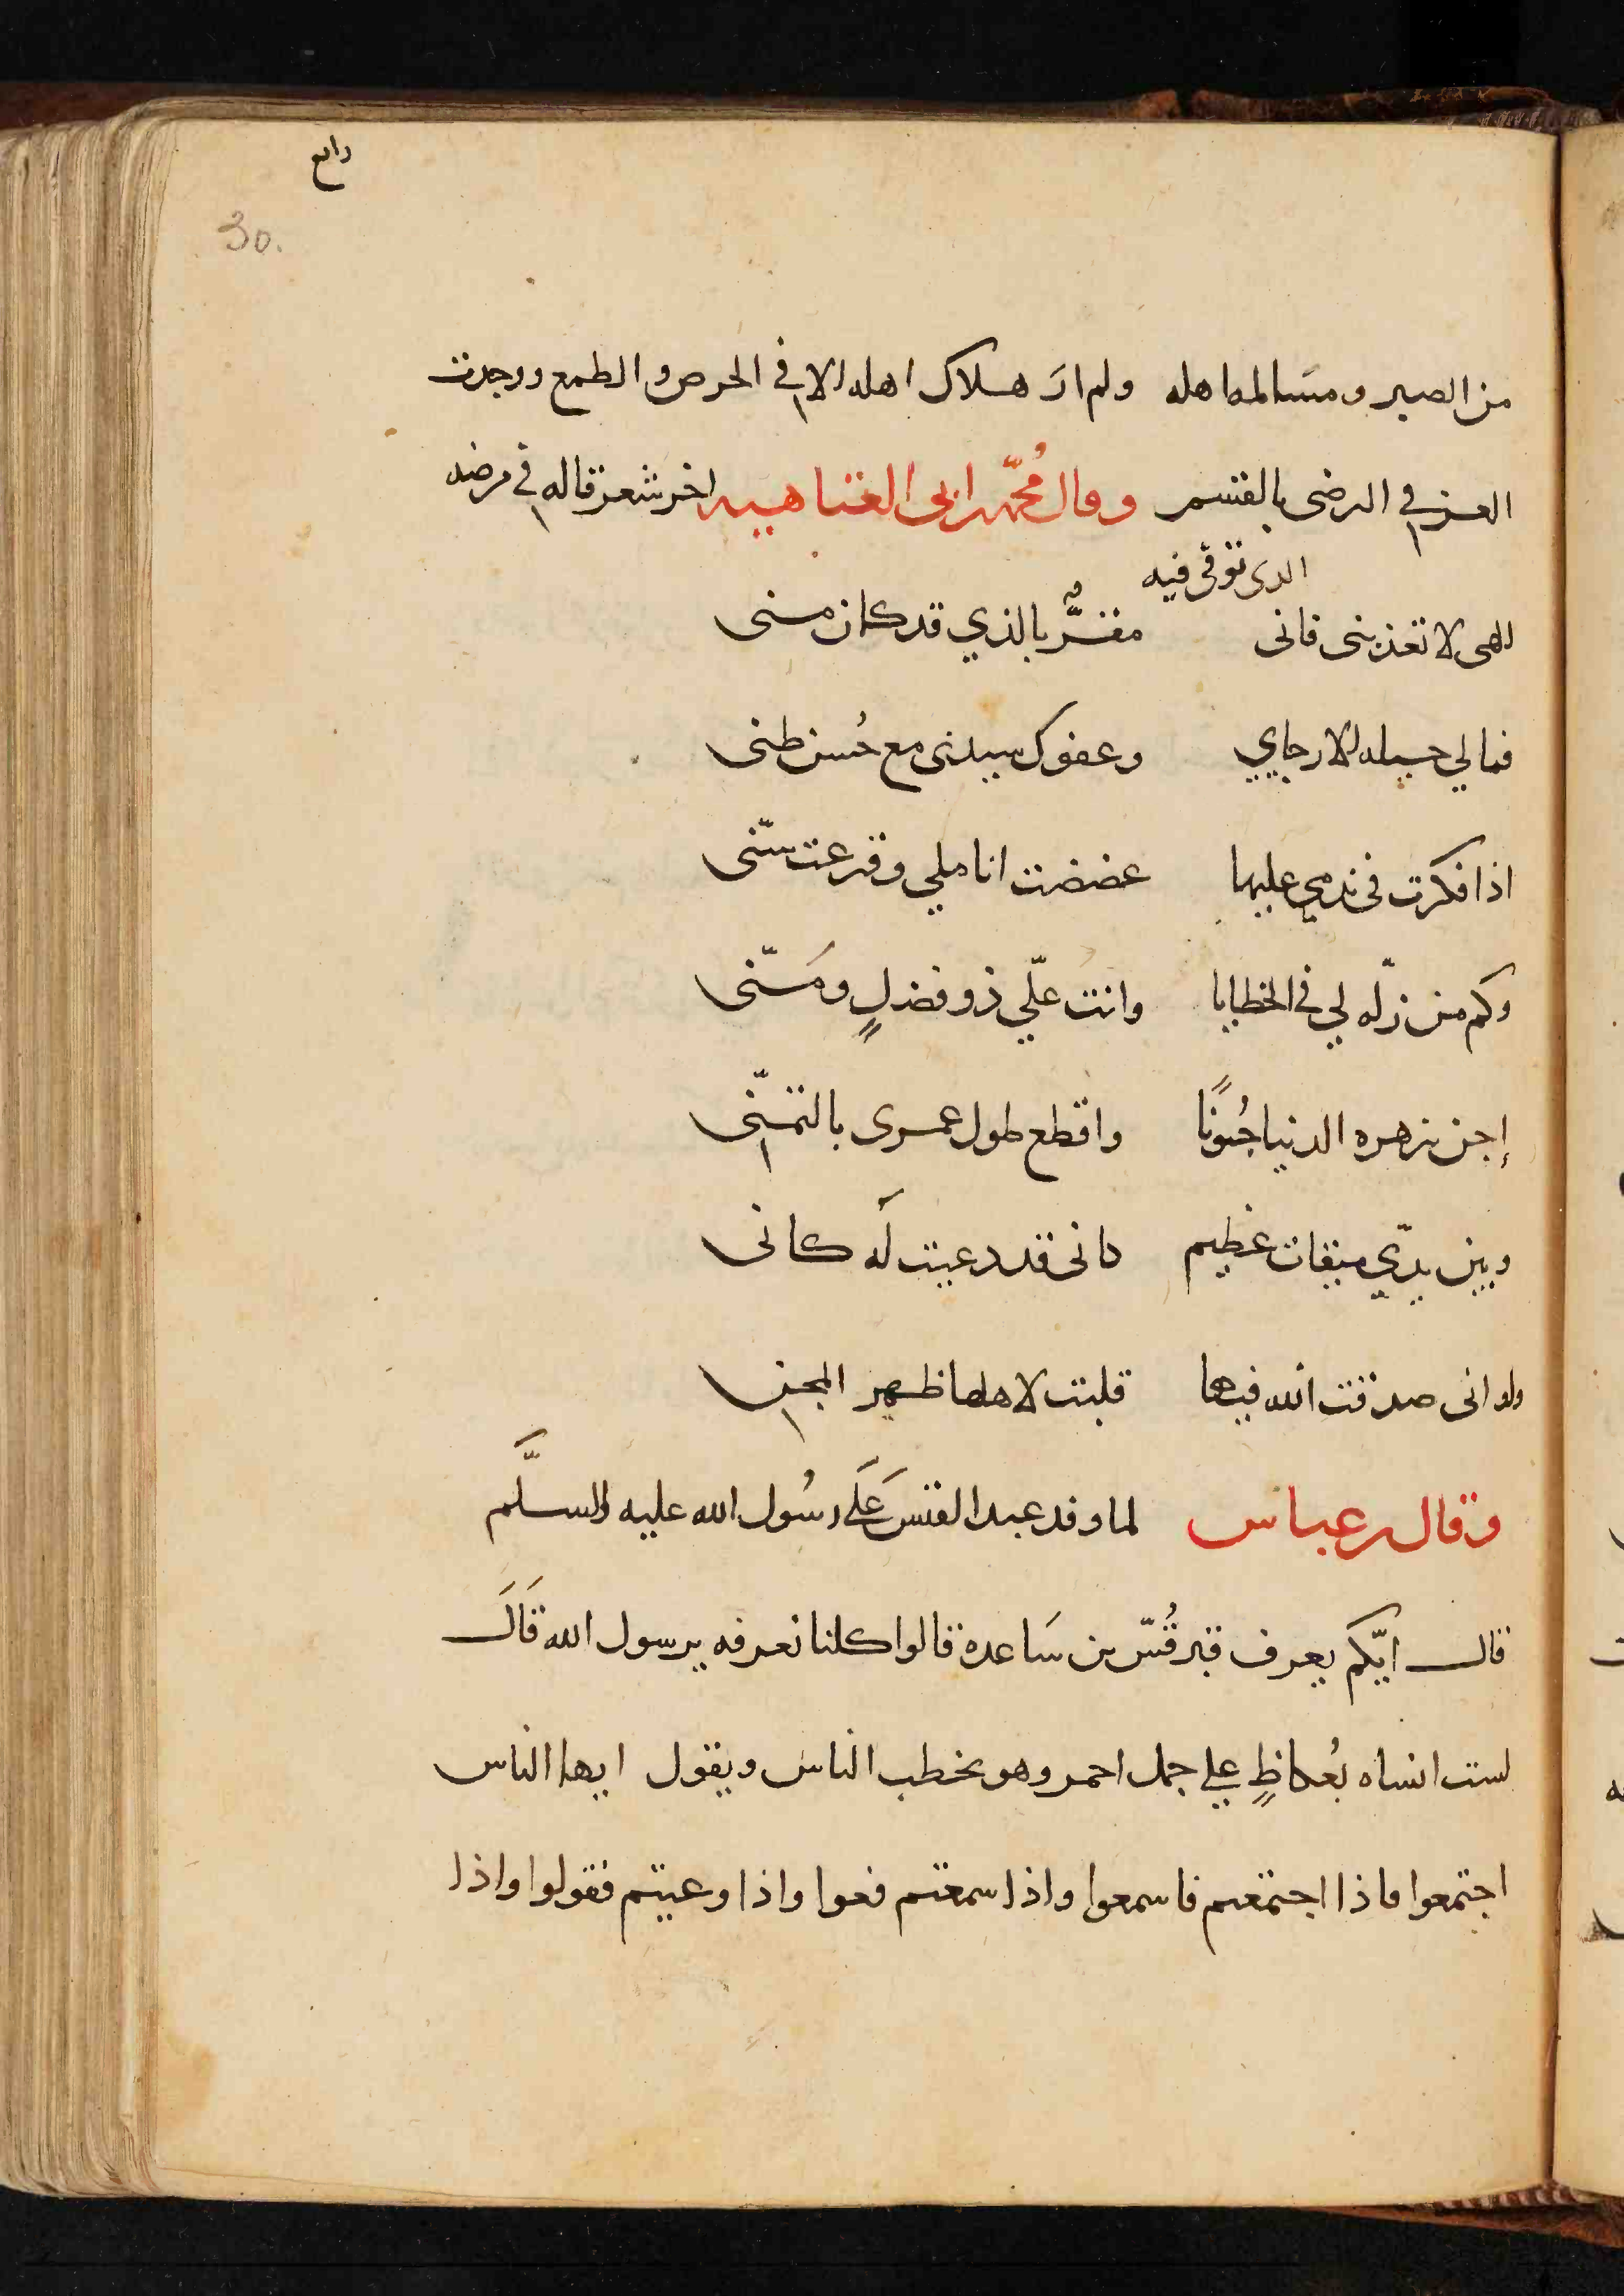 رابع
30.
من الصبر ومسَالمه اهله ولم ارَ هلاك اهله الا في الحرص والطمع ووجدت
العز في الرضى بالقسم وقال مُحمّد ابى العتاهيه اخر شعر قاله في مرضه
الدى توفى فيه
الهى لا تعذبنى فانى مقرٌّ بالذي قد كان منى
فما لي حيله الا رجايي وعفوك سيدى مع حُسن ظنى
اذا فكرت في ندمي عليها عضضت اناملي وقرعت سنّى
وكم من زلّه لي في الخطايا وانت علّي ذو فضلٍ ومَنّى
إجن بزهره الدنيا جُنونًا واقطع طول عمرى بالتمنّى
وبين يدّي ميقات عظيم كانى قد دعيت لَه كانى
ولو انى صدقت الله فيها قلبت لاهلها ظهر المجن
وقال عباس لما وفد عبد القيسَ عَلَى رسُول الله عليه والسلَّم
قال ايّكم يعرف قبر قُسّ بن سَاعده قالوا كلنا نعرفه يرسول الله قَالَ
لست انساه بُعكاظٍ علي جمل احمر وهو يخطب الناس ويقول ايها الناس
اجتمعوا فاذا اجتمعتم فاسمعوا واذا سمعتم فعوا واذا وعيتم فقولوا واذا